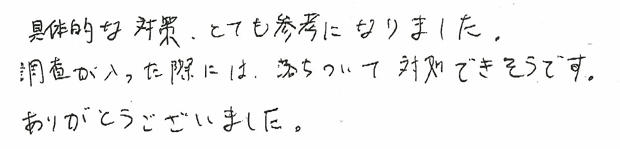 具体的な対策、とても参考になりました。
調査が入った際には、落ちついて対処できそうです。
ありがとうございました。